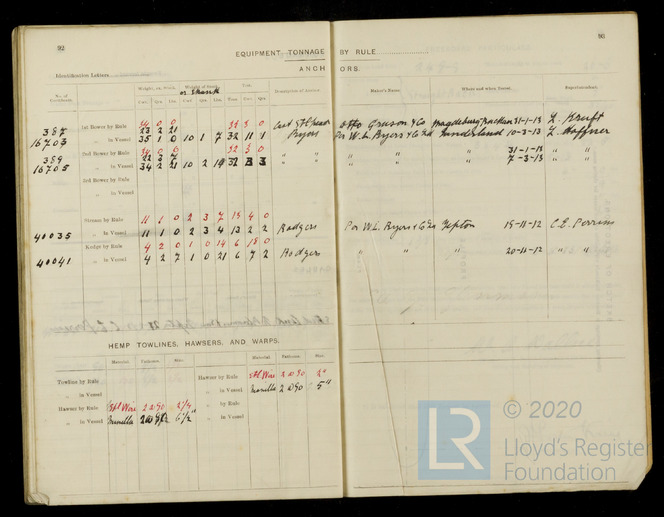 92
EQUIPMENT TONNAGE BY RULE
93
Identification Letters
ANCHORS.
No. of Certificate.
Weight, ex. Stock.
or Shank
Test.
Description of Anchor.
Maker's Name.
Where and when Tested.
Superintendent.
Cwt. Qrs. Lbs. Cwt. Qrs. Lbs. Tons. Cwt. Qrs.
1st Bower by Rule 34 0 0
387 23 2 21 Otto Gruson & Co Magdeburg Buckau 31-1-13
16703 in Vessel 35 1 0 10 1 7 32 11 1 Byers Per W. L. Byers & Co Ld Sunderland 10-3-13 L. Haffner
2nd Bower by Rule 34 0 0
389 22 3 7 " " " 31-1-13 " "
16705 " in Vessel 34 2 21 10 2 19 32 3 3 " " " " " 7-3-13 " "
3rd Bower by Rule
" in Vessel
Stream by Rule 11 1 0 2 3 7 13 4 0
40035 " in Vessel 11 1 0 2 3 4 13 2 2 Rodgers Per W. L. Byers & Co Ld Tipton 15-11-12 C. E. Perrins
Kedge by Rule 4 2 0 1 0 14 6 18 0
40041 " in Vessel 4 2 7 1 0 21 6 7 2 Rodgers " " " 20-11-12 " "
HEMP TOWLINES, HAWSERS, AND WARPS.
Material. Fathoms. Size. Material. Fathoms. Size.
Towline by Rule Hawser by Rule Stl Wire 2 @ 90 2"
" in Vessel " in Vessel Manilla 2 @ 90 5"
Hawser by Rule Stl Wire 2 @ 90 2 3/4 " by Rule
" in Vessel Manilla 6 1/2" " in Vessel
LR © 2020
Lloyd's Register
Foundation